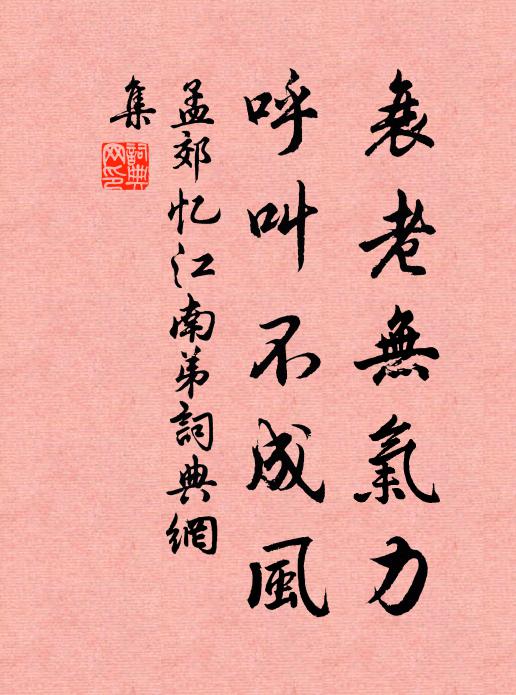 衰老無氣力
呼叫不成風
孟郊忆江南弟詞典網
集
詞典
网印